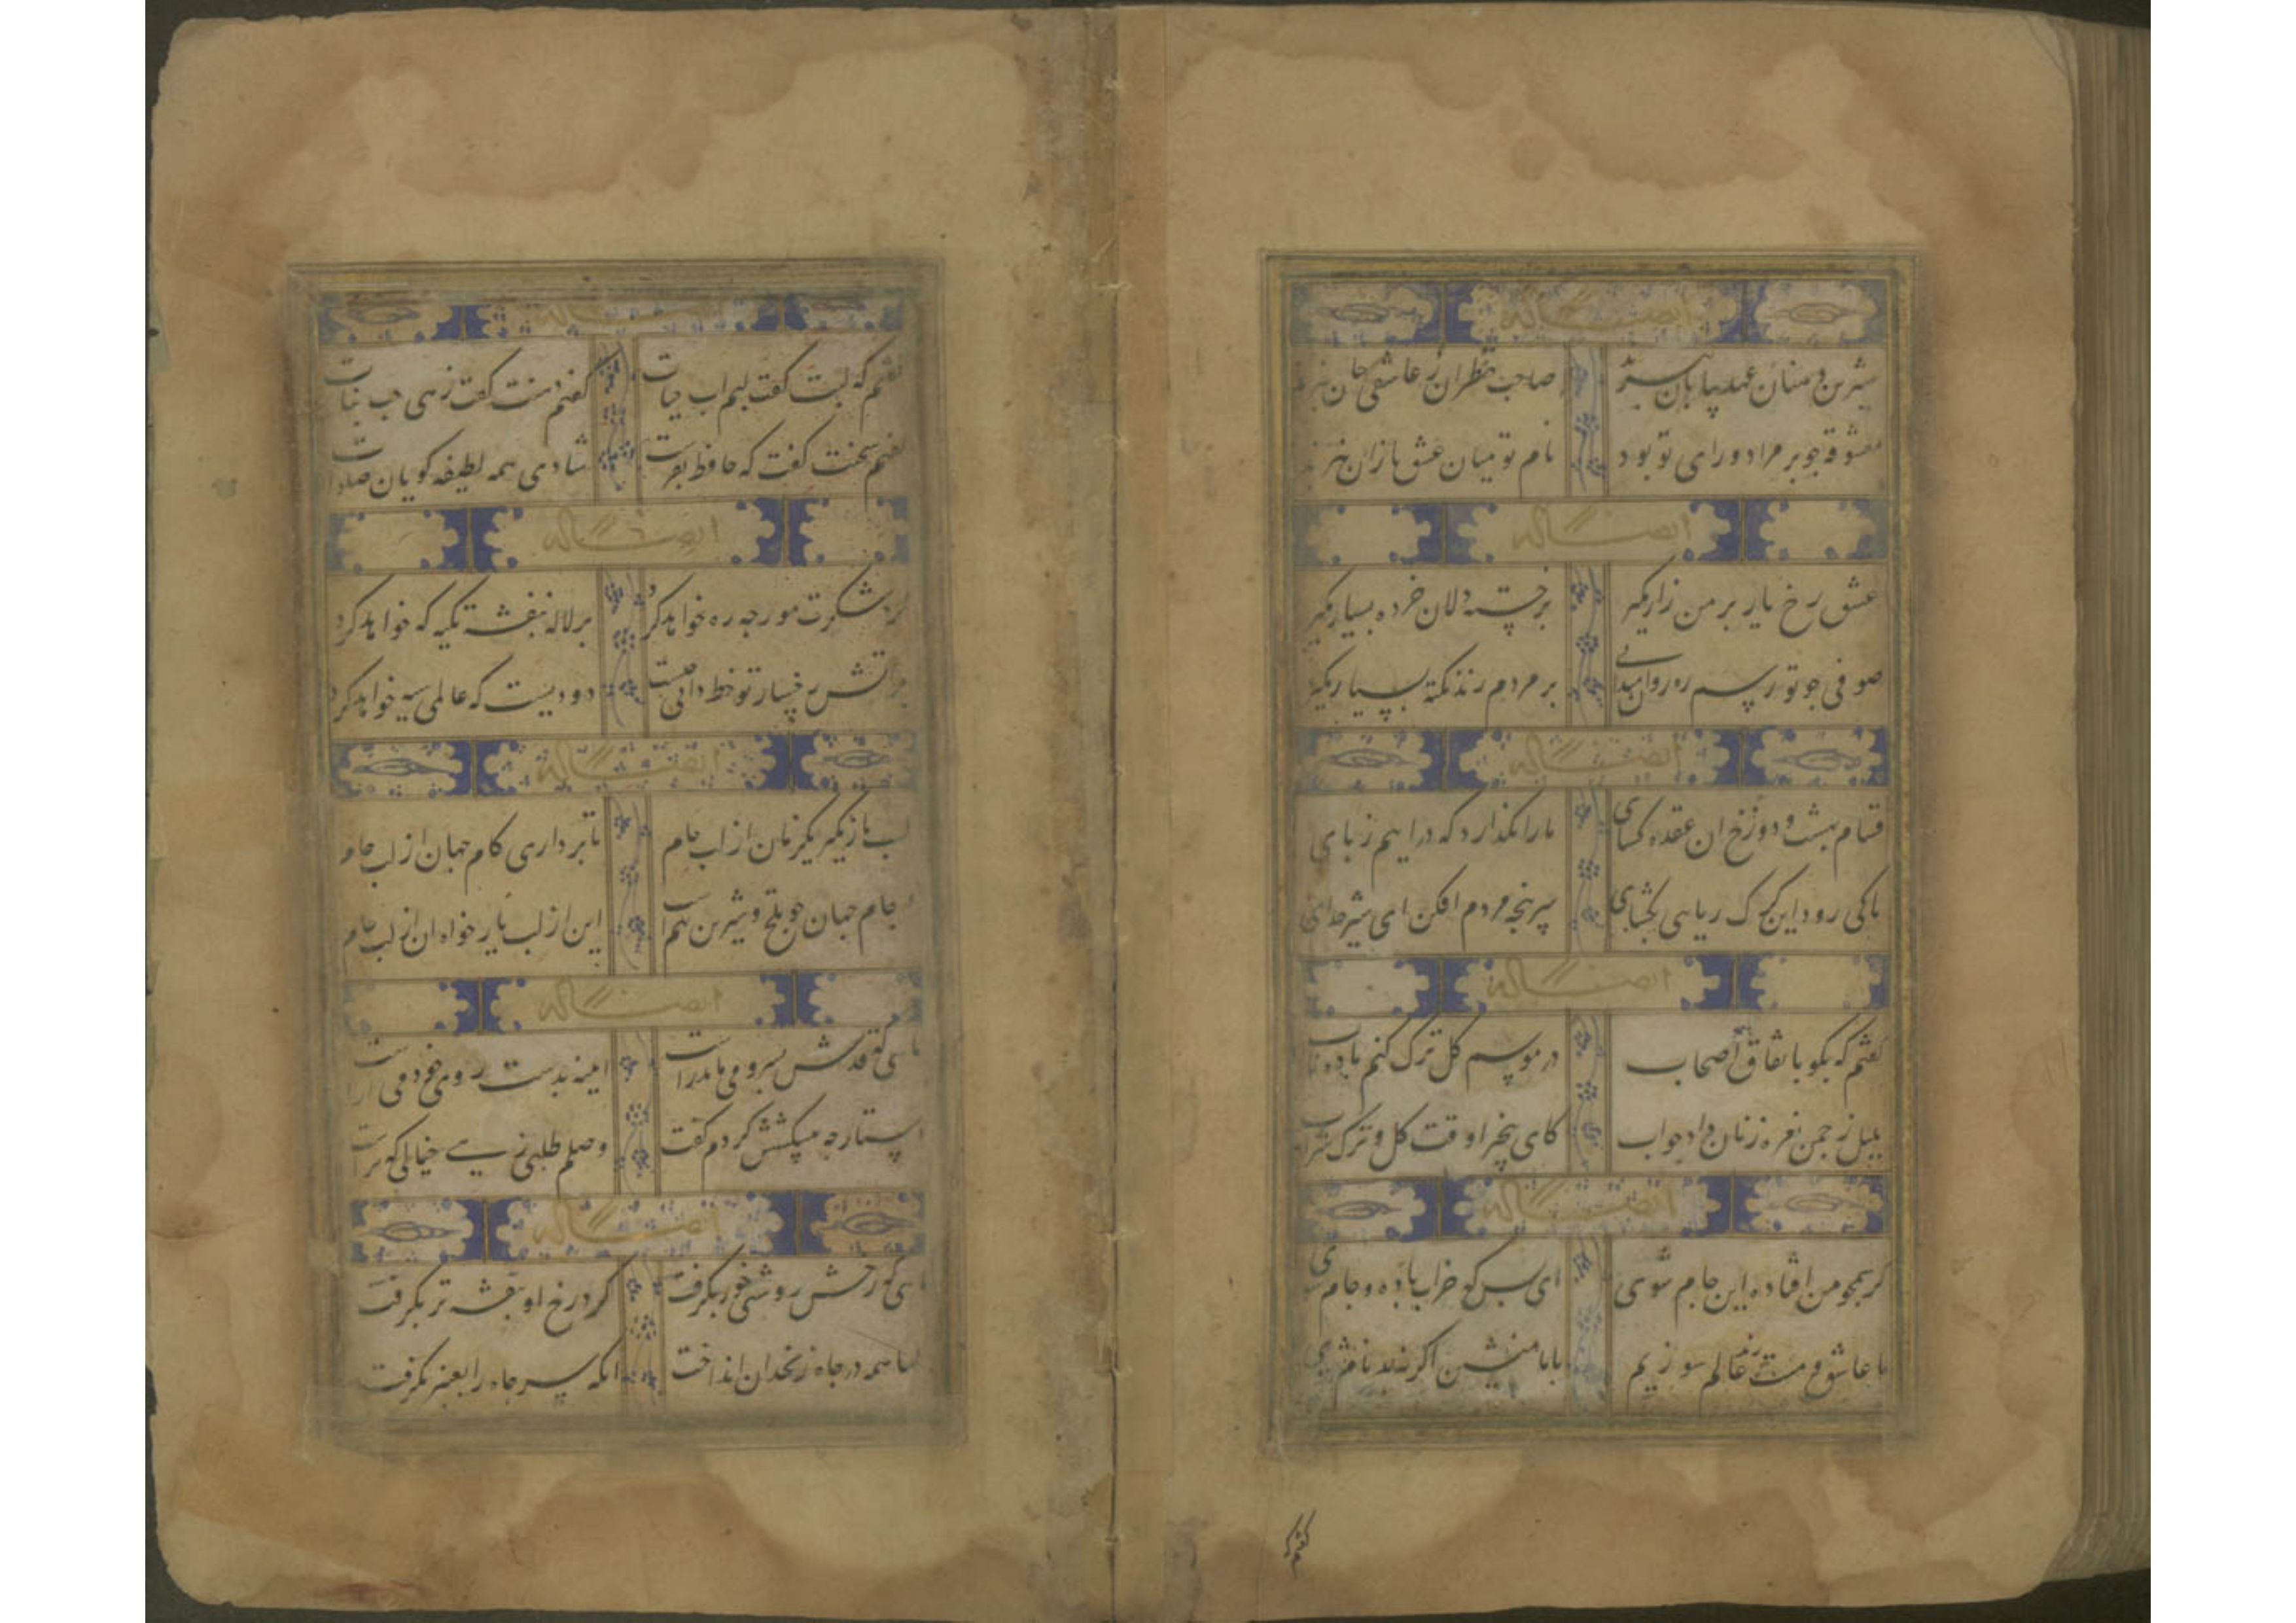 ایضا له
شیرین دهنان عهد بپایان نبرند صاحب نظران ز عاشقی جان نبرند
معشوقه جو بر مراد و رای تو بود نام تو میان عشق بازان نبرند
ایضا له
عشق رخ یار بر من زار مکیر بر خسته دلان خرده بسیار مکیر
صوفی جو تو رسم ره روان میدانی بر مردم رند نکته بسیار مکیر
ایضا له
قسام بهشت و دوزخ ان عقده کشای ما را نکذارد که درایم ز پای
تا کی رود این کرک ربایی بنمای سرپنجه مردم افکن ای شیر خدای
ایضا له
کفتم که بکو باتفاق اصحاب در موسم کل ترک کنم باده ناب
بلبل ز جمن نعره زنان داد جواب کای بیخبر او قت کل و ترک شراب
ایضا له
کر همجو من افتاده این جام شوی ای بس که خراب باده و جام شوی
ما عاشق و مست و رند عالم سوزیم با ما منشین اکر نه بدنام شوی
کفتم که
ایضا له
کفتم که لبت کفت لبم اب حیات کفتم دهنت کفت زهی حب نبات
کفتم سخنت کفت که حافظ کفت شادی همه لطیفه کویان صلوات
ایضا له
بر شکرت مورجه ره خواهد کرد بر لاله بنفشه تکیه که خواهد کرد
بر اتش رخسار تو خط دانی جیست دودیست که عالمی سیه خواهد کرد
ایضا له
لب باز مکیر یکزمان از لب جام تا برداری کام جهان از لب جام
در جام جهان جو تلخ و شیرین بهم است این از لب یار خواه ان از لب جام
ایضا له
ماهی که قدش بسرو می ماند راست ایینه بدست و روی خود می اراست
دستارجه پیشکشش کردم کفت وصلم طلبی زهی خیالی که تراست
ایضا له
ماهی که رخش روشنی خور بکرفت کرد رخ او بنفشه تر بکرفت
دلها همه در جاه زنخدان انداخت وانکه سر جاه را بعنبر بکرفت